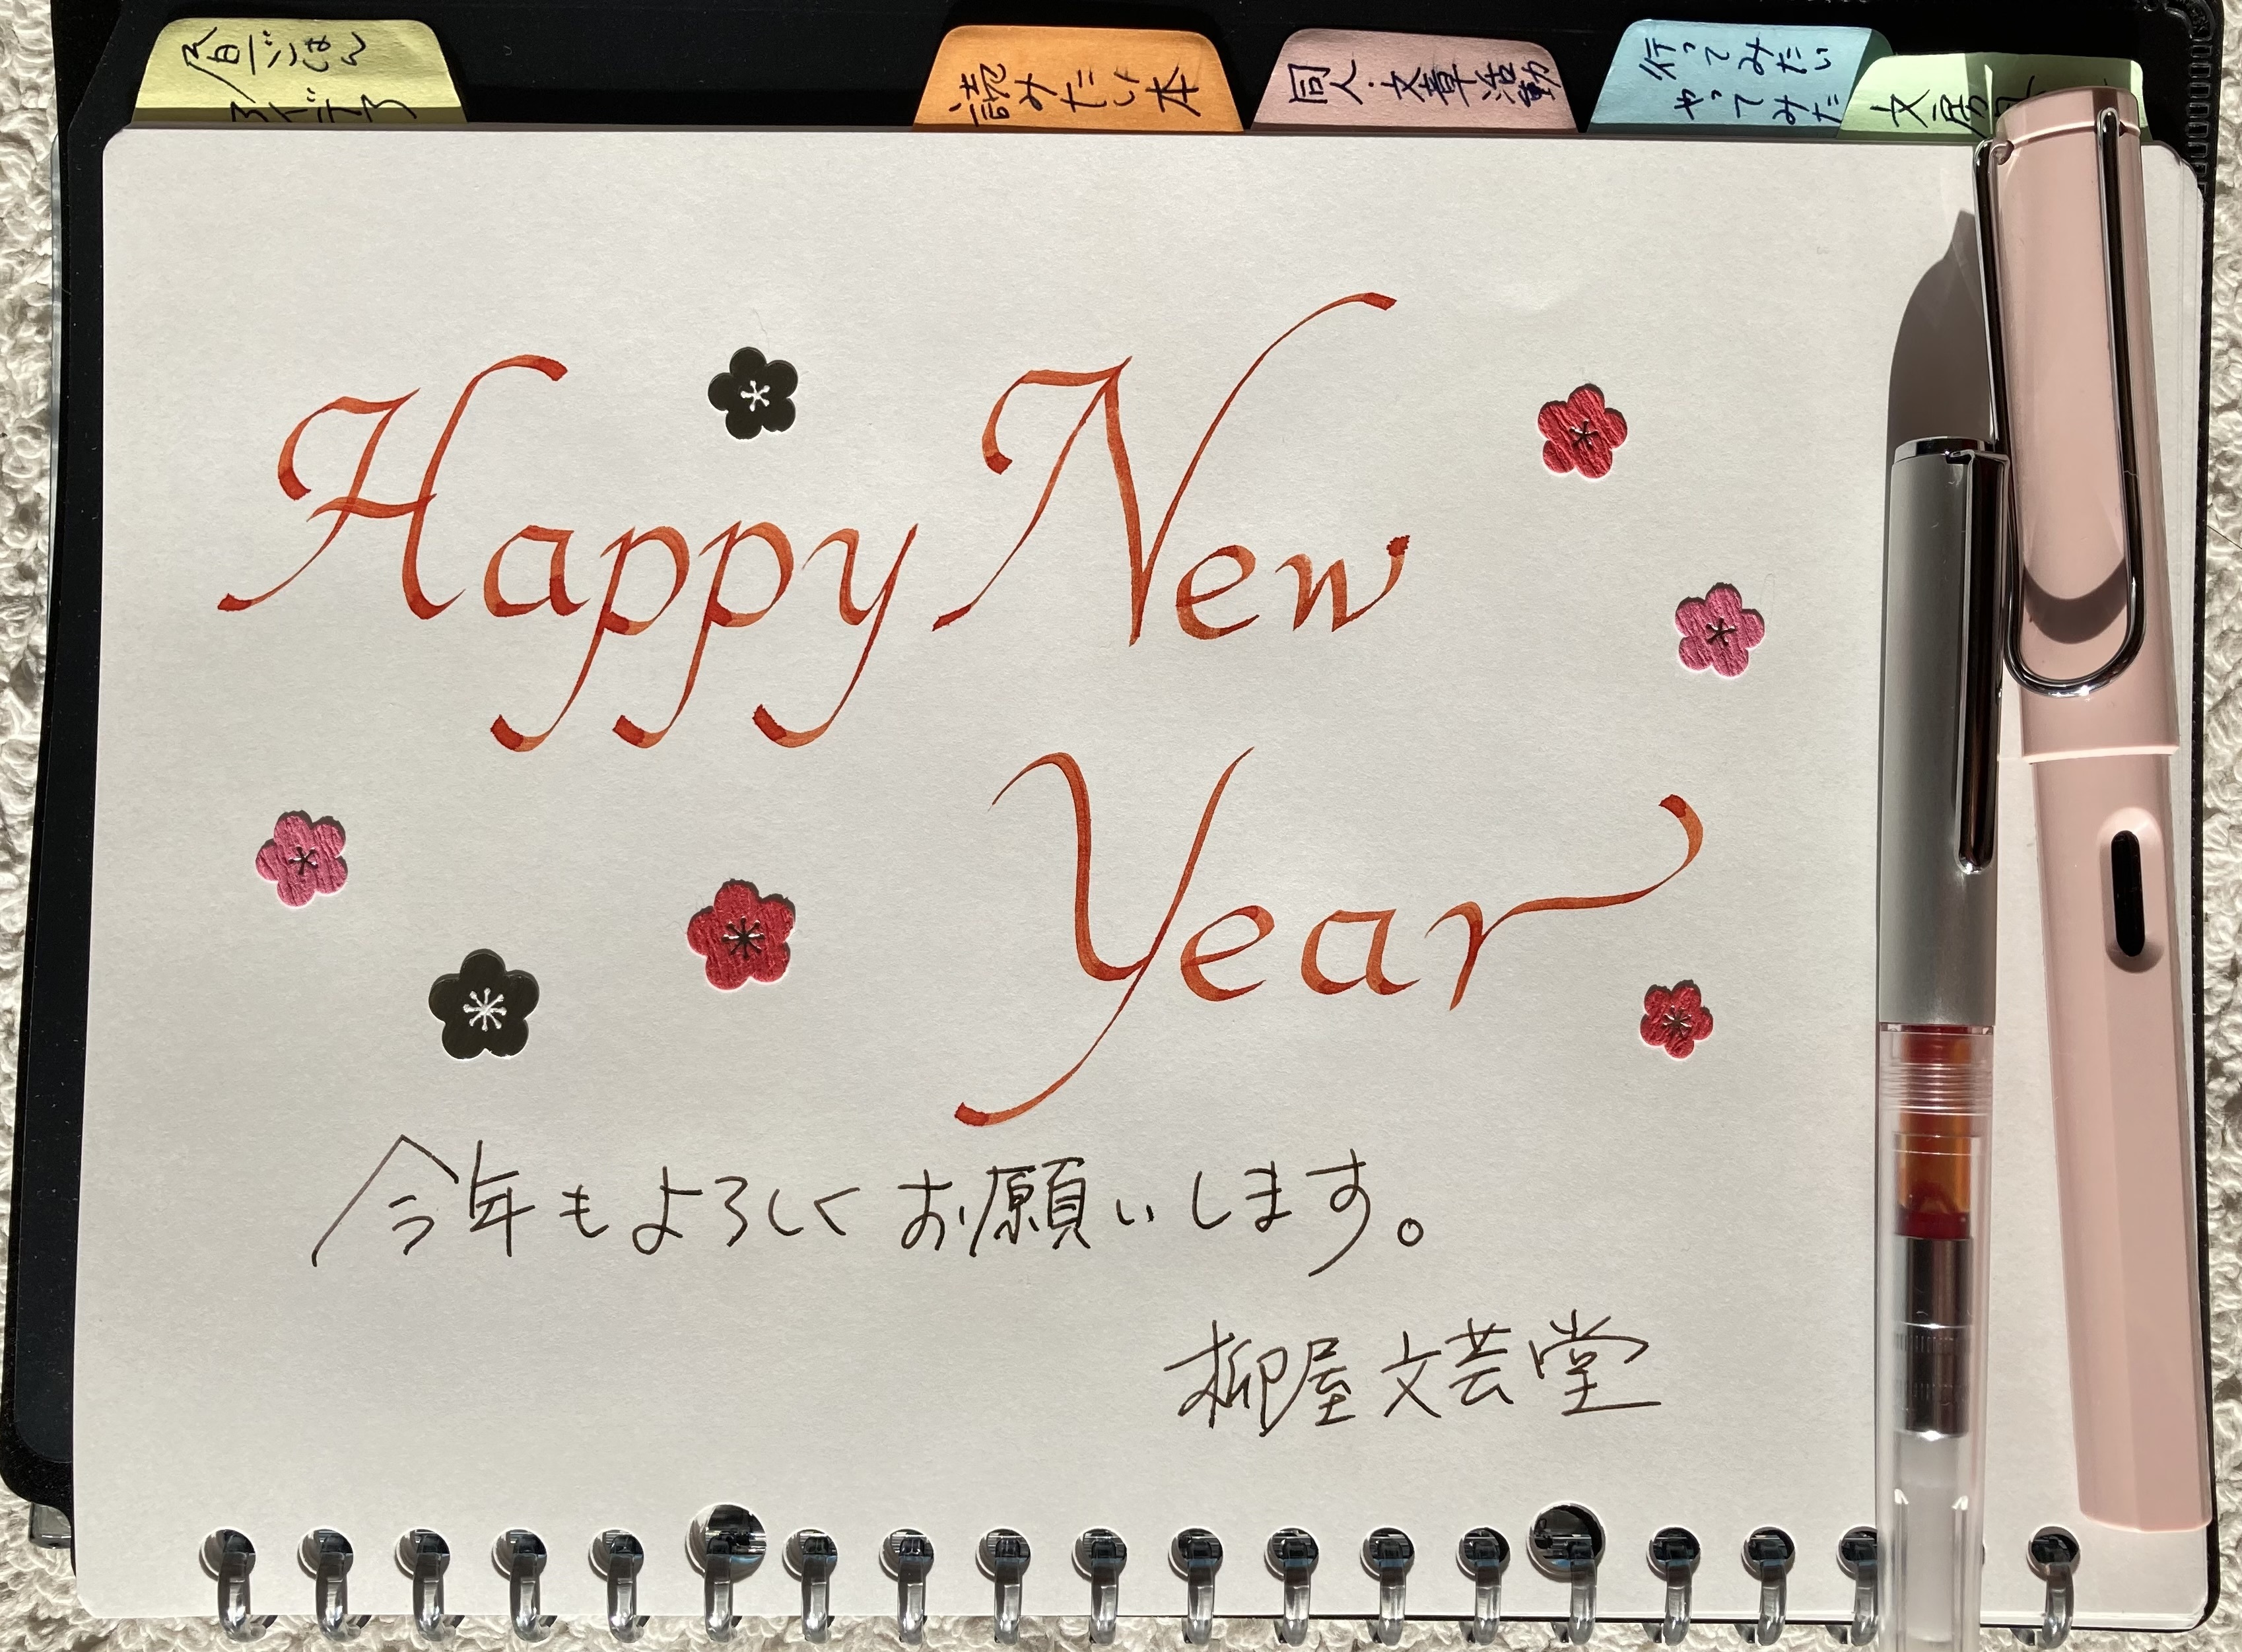 読みたい本
同人・文章活動
行ってみたい
やってみた
Happy New
Year
今年もよろしくお願いします。
柳屋文芸堂